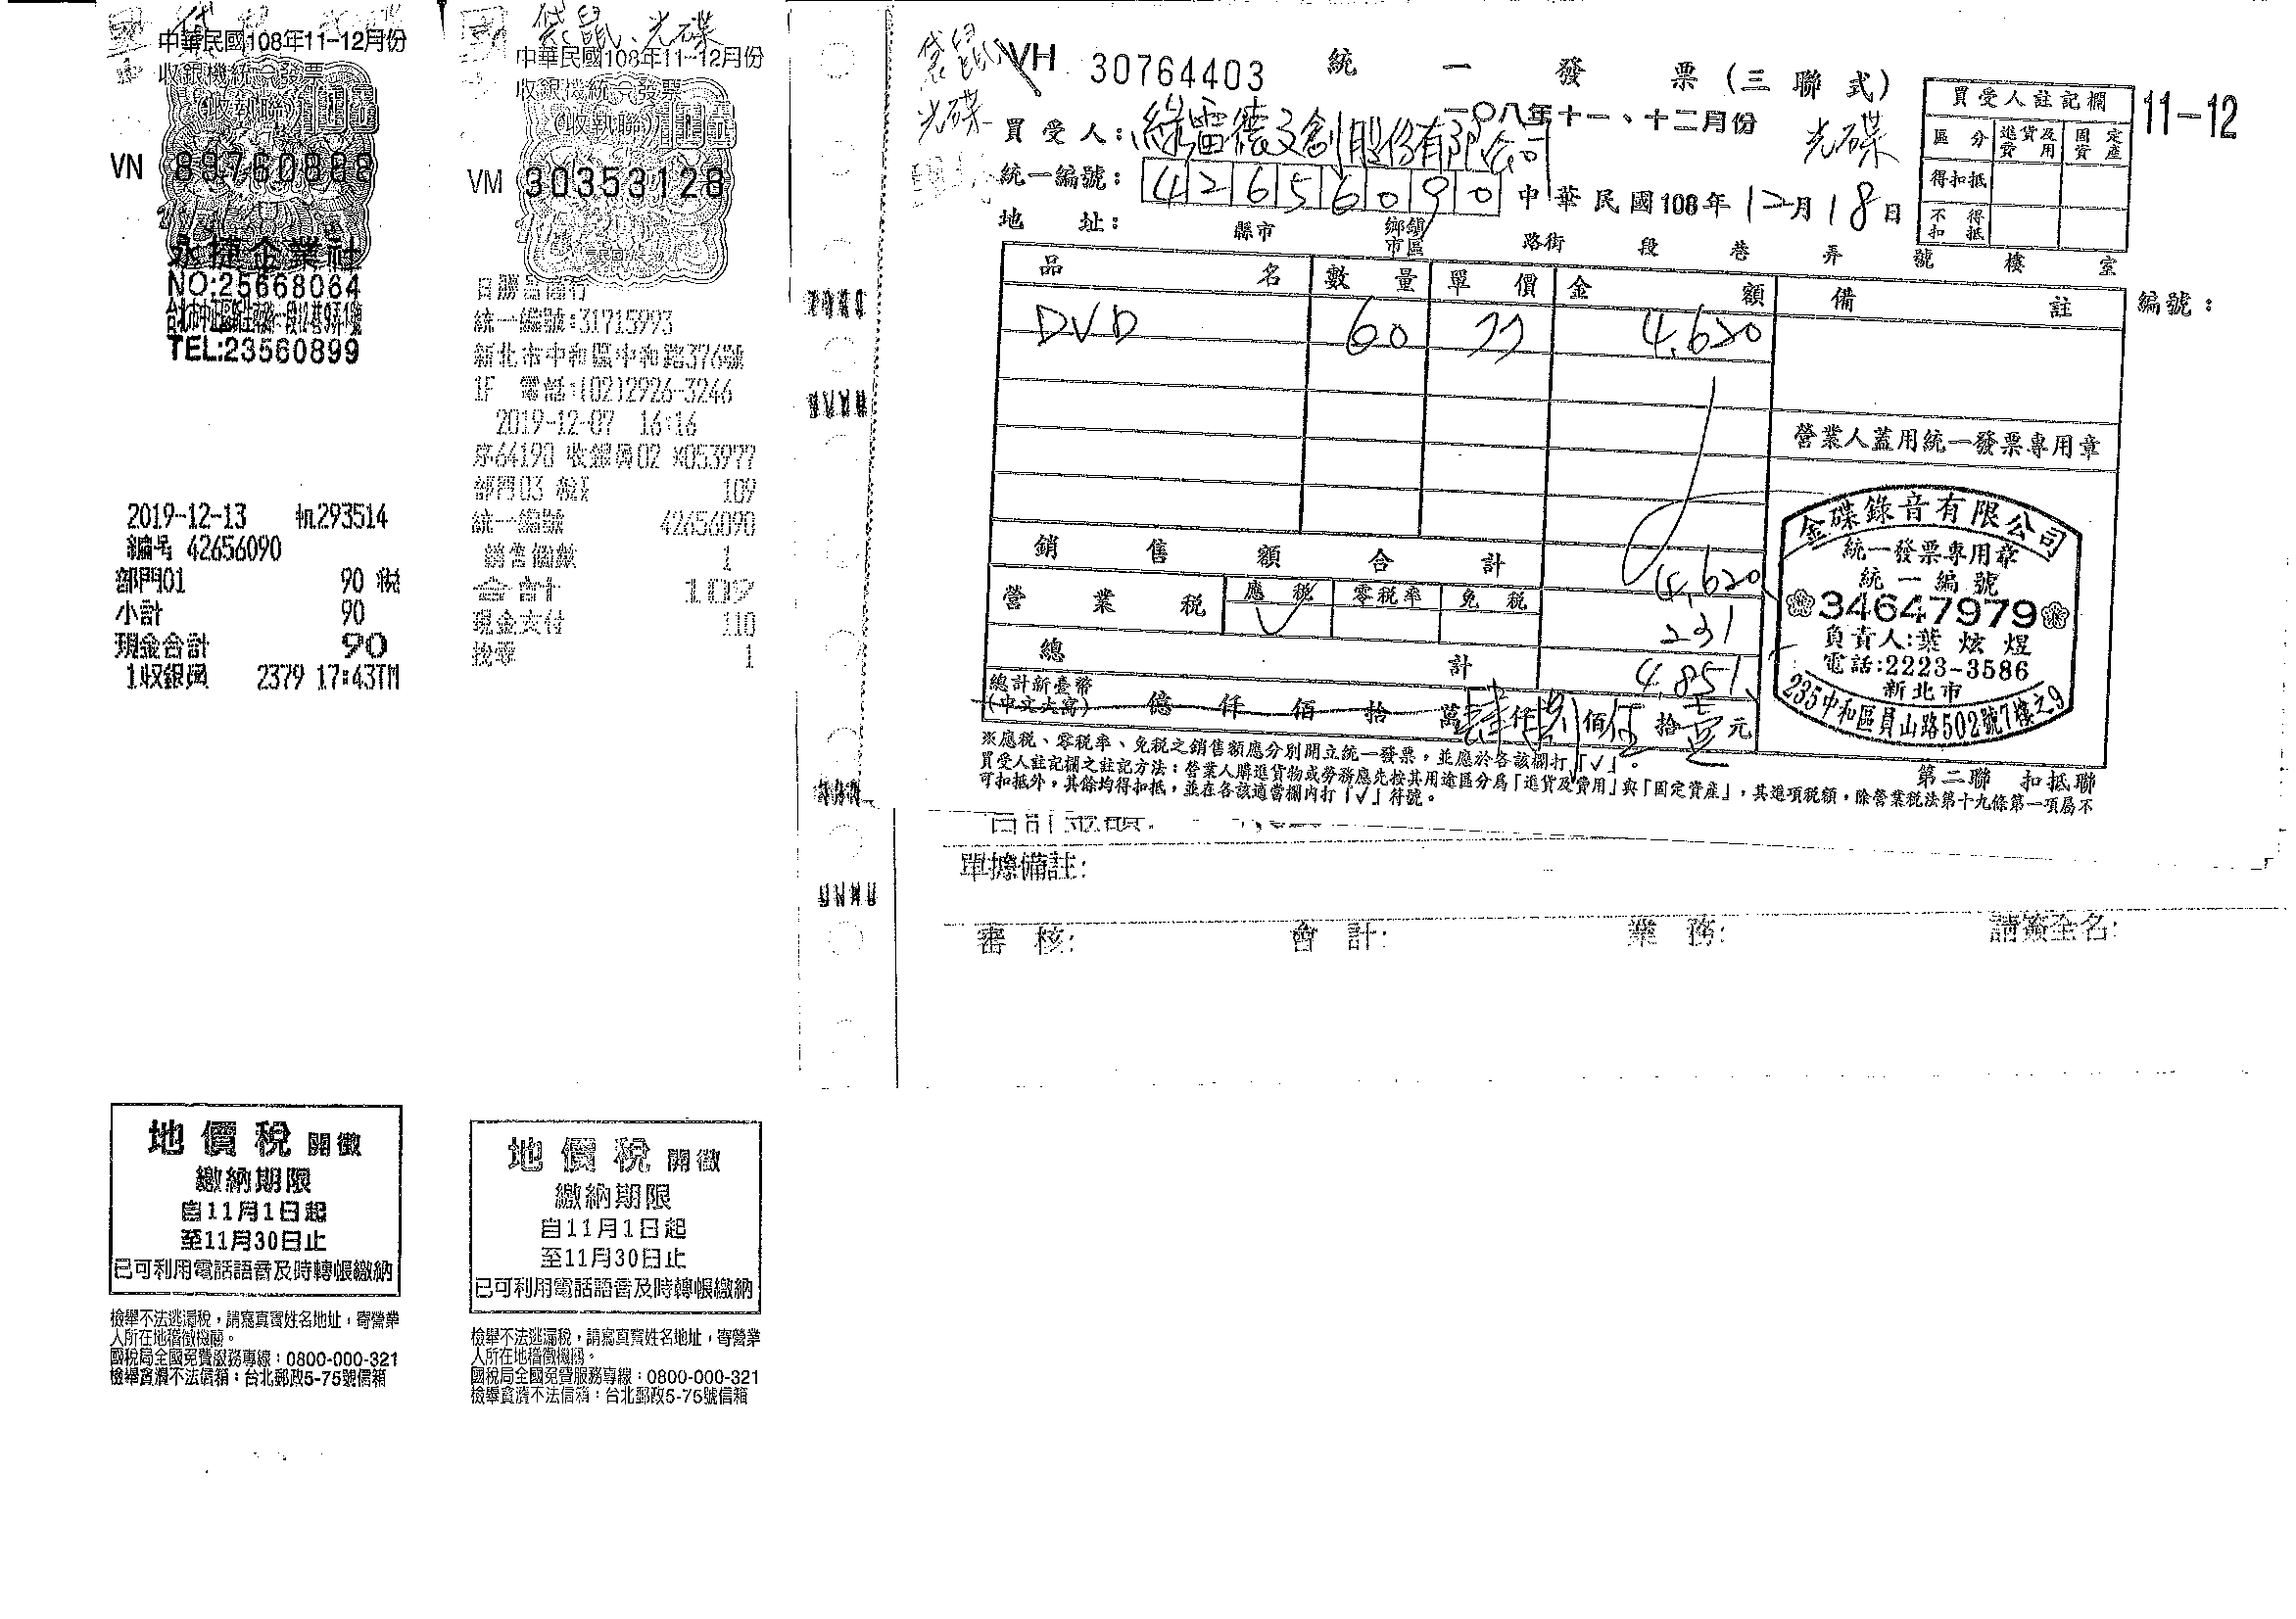 袋鼠、光碟
中華民國108年11-12月份
收銀機統一發票
(收執聯)
VN 89760888
永捷企業社
NO:25668064
TEL:23560899
2019-12-13 机293514
編号 42656090
部門01 90 稅
小計 90
現金合計 90
1收銀員 2379 17:43TM
地價稅 開徵
繳納期限
自11月1日起
至11月30日止
已可利用電話語音及時轉帳繳納
檢舉不法逃漏稅，請寫真實姓名地址，寄營業
人所在地稽徵機關。
國稅局全國免費服務專線：0800-000-321
檢舉貪瀆不法信箱：台北郵政5-75號信箱
袋鼠、光碟
中華民國108年11-12月份
收銀機統一發票
(收執聯)
VM 30353128
日勝昌商行
統一編號:31715993
新北市中和區中和路376號
1F 電話:(02)2926-3246
2019-12-07 16:16
序64190 收銀員02 N053977
部門03 稅 109
統一編號 42656090
銷售個數 1
合計 109
現金支付 110
找零 1
地價稅 開徵
繳納期限
自11月1日起
至11月30日止
已可利用電話語音及時轉帳繳納
檢舉不法逃漏稅，請寫真實姓名地址，寄營業
人所在地稽徵機關。
國稅局全國免費服務專線：0800-000-321
檢舉貪瀆不法信箱：台北郵政5-75號信箱
袋鼠
光碟
VH 30764403 統一發票(三聯式)
一〇八年十一、十二月份
11-12
光碟
買受人：綠雷德文創股份有限公司
統一編號：42656090 中華民國108年12月18日
地址： 縣市 鄉鎮市區 路街 段 巷 弄 號 樓 室
買受人註記欄
區分 進貨及費用 固定資產
得扣抵
不得扣抵
編號：
品名 數量 單價 金額 備註
DVD 60 77 4,620
營業人蓋用統一發票專用章
銷售額合計 4,620
營業稅 應稅 ✓ 零稅率 免稅 231
總計 4,851
總計新臺幣
(中文大寫) 億仟佰拾萬肆仟捌佰伍拾壹元
金碟錄音有限公司
統一發票專用章
統一編號
34647979
負責人:葉炫煜
電話:2223-3586
新北市
235中和區員山路502號7樓之9
※應稅、零稅率、免稅之銷售額應分別開立統一發票，並應於各該欄打「✓」。
買受人註記欄之註記方法：營業人購進貨物或勞務應先按其用途區分為「進貨及費用」與「固定資產」，其進項稅額，除營業稅法第十九條第一項屬不
可扣抵外，其餘均得扣抵，並在各該適當欄內打「✓」符號。
第二聯 扣抵聯
單據備註:
審核: 會計: 業務: 請簽全名: